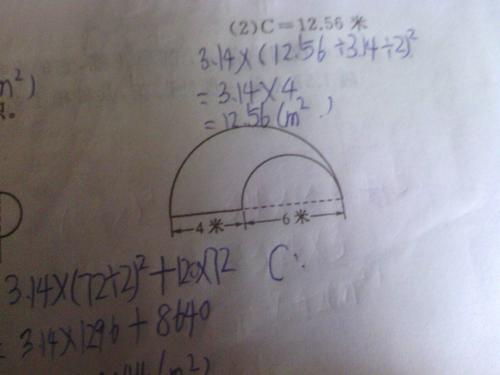 (2)C=12.56 米
3.14×(12.56÷3.14÷2)²
=3.14×4
=12.56(m²)
m²)
4 米 6 米
C:
3.14×(72÷2)²+120×72
=3.14×1296+8640
(m²)